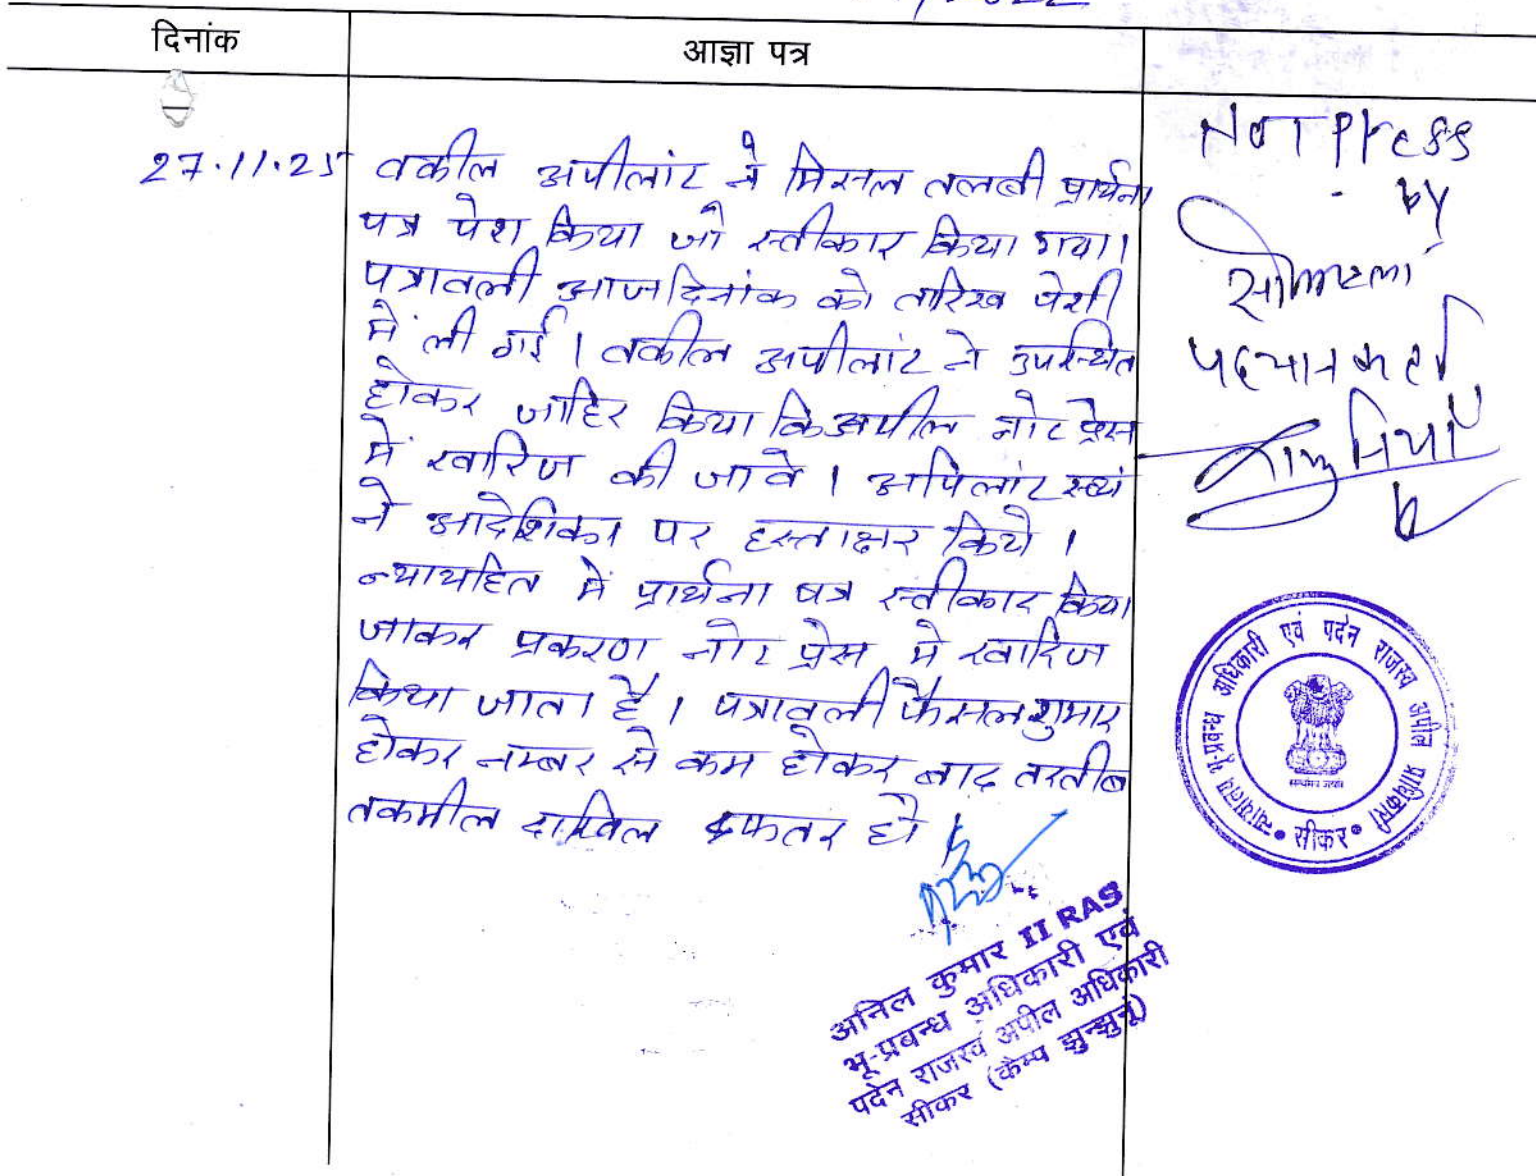 दिनांक
आज्ञा पत्र
27.11.25
वकील अपीलांट ने मिसल तलबी प्रार्थना
पत्र पेश किया जो स्वीकार किया गया।
पत्रावली आज दिनांक को तारिख पेशी
में ली गई। वकील अपीलांट ने उपस्थित
होकर जाहिर किया कि अपील नोट प्रेस
में खारिज की जावे। अपिलांट स्व्यं
ने आदेशिका पर हस्ताक्षर किये।
न्यायहित में प्रार्थना पत्र स्वीकार किया
जाकर प्रकरण नोट प्रेस मे खारिज
किया जाता है। पत्रावली फैसल शुमार
होकर नम्बर से कम होकर बाद तरतीब
तकमील दाखिल दफतर हो।
Not press
by
न्यायालय भू-प्रबन्ध अधिकारी एवं पदेन राजस्व अपील प्राधिकारी
सीकर
अनिल कुमार II RAS
भू-प्रबन्ध अधिकारी एवं
पदेन राजस्व अपील अधिकारी
सीकर (केम्प झुन्झुनूं)